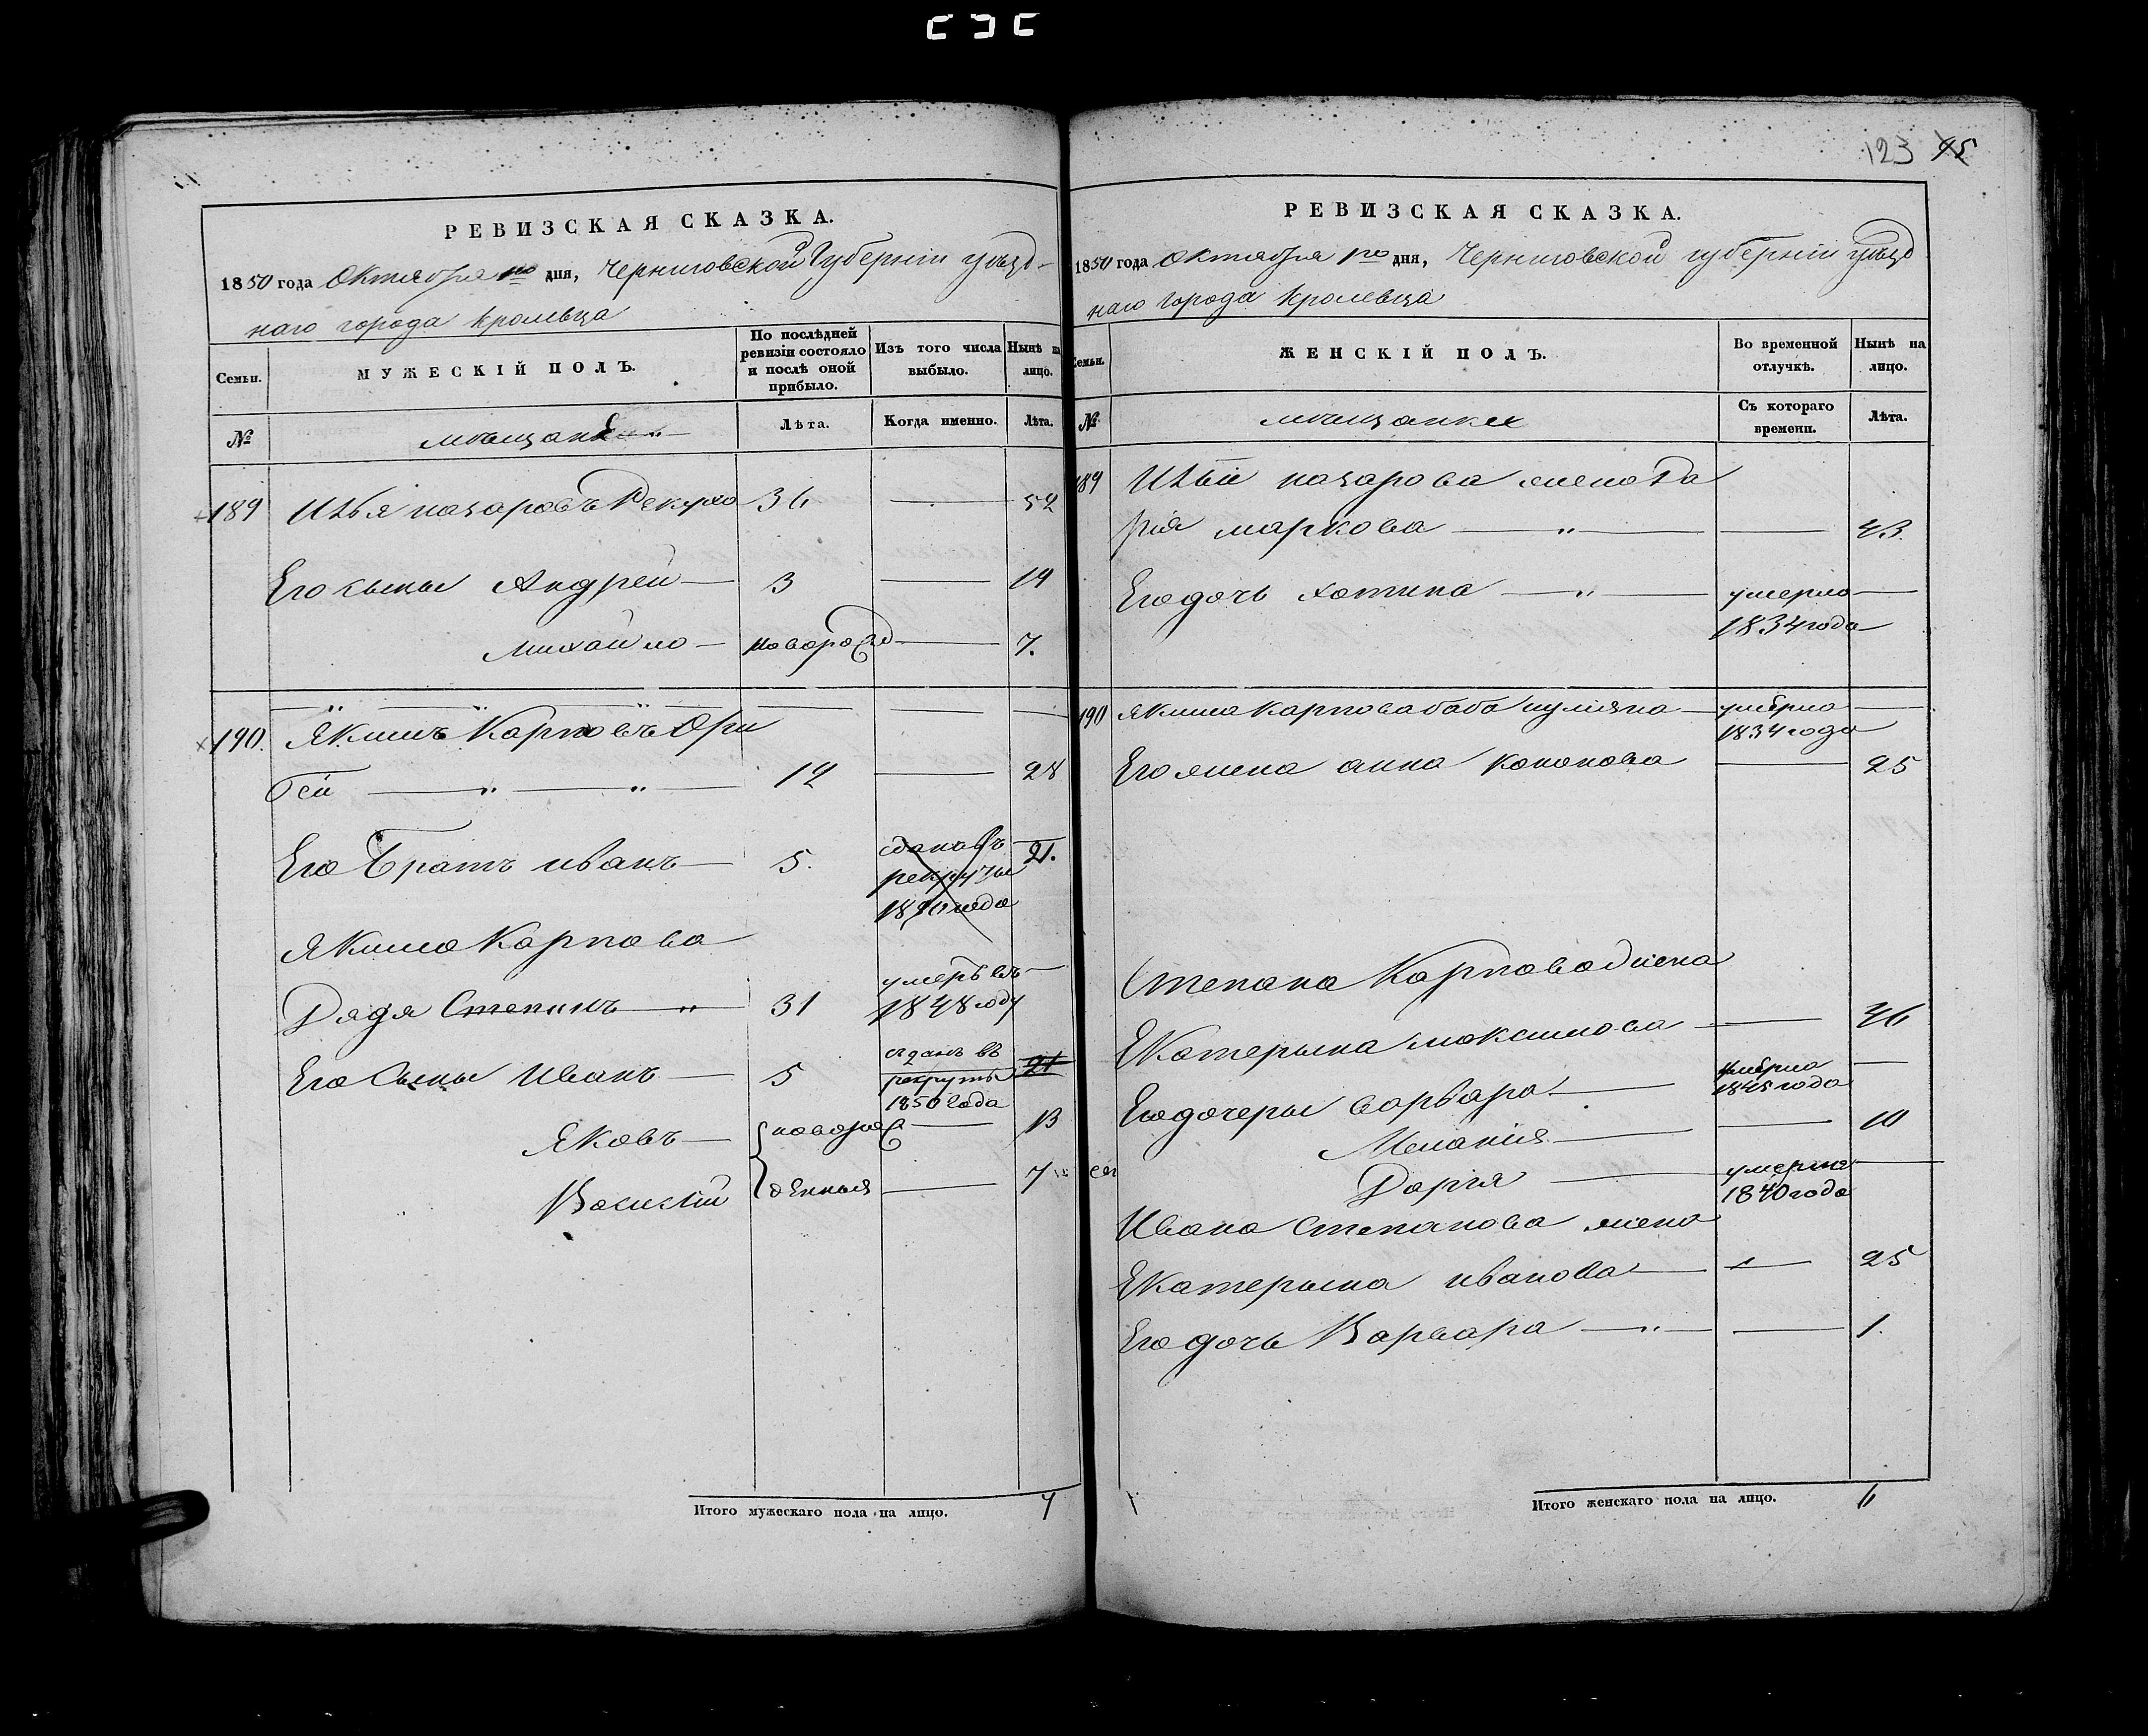 123 95
РЕВИЗСКАЯ СКАЗКА.
1850 года Октября 1го дня, Черниговской Губернiи уѣзд-
наго города Кролевца
Семьи.
МУЖЕСКIЙ ПОЛЪ.
По послѣдней ревизiи состояло и послѣ оной прибыло.
Изъ того числа выбыло.
Нынѣ на лицо.
№
мѣщане
Лѣта.
Когда именно.
Лѣта.
189 Илья назаровъ Рекухо 36 52
Его сыны Андрей 3 19
михайло новорожд 7.
190. Якимъ Карповъ
12 28
Его Братъ иванъ 5. сданъ въ рекруты 21.
Якима Карпова
Дядя Степанъ 31 умеръ въ 1848 году
Его Сыны Иванъ 5 сданъ въ рекруты 1850 года 21
Яковъ новорож 13
Василiй денныя 7
Итого мужескаго пола на лицо. 7
РЕВИЗСКАЯ СКАЗКА.
1850 года Октября 1го дня, Черниговской губернiи уѣзд
наго города Кролевца
Семьи.
ЖЕНСКIЙ ПОЛЪ.
Во временной отлучкѣ.
Нынѣ на лицо.
№
мѣщанки
Съ котораго времени.
Лѣта.
189 Ильи назарова жена Да
рiя маркова 43
Его дочь хотина умерла 1834 года
190 якима карпова баба улияна умерла 1834 года
Его жена анна кононова 25
Степана Карпова жена
Екатерына максимова 46
Его дочеры варвара умерла 1845 года
Меланiя 10
Дарiя умерла 1840 года
Ивана Степанова жена
Екатерына иванова 25
Его дочь Варвара 1.
Итого женскаго пола на лицо. 6